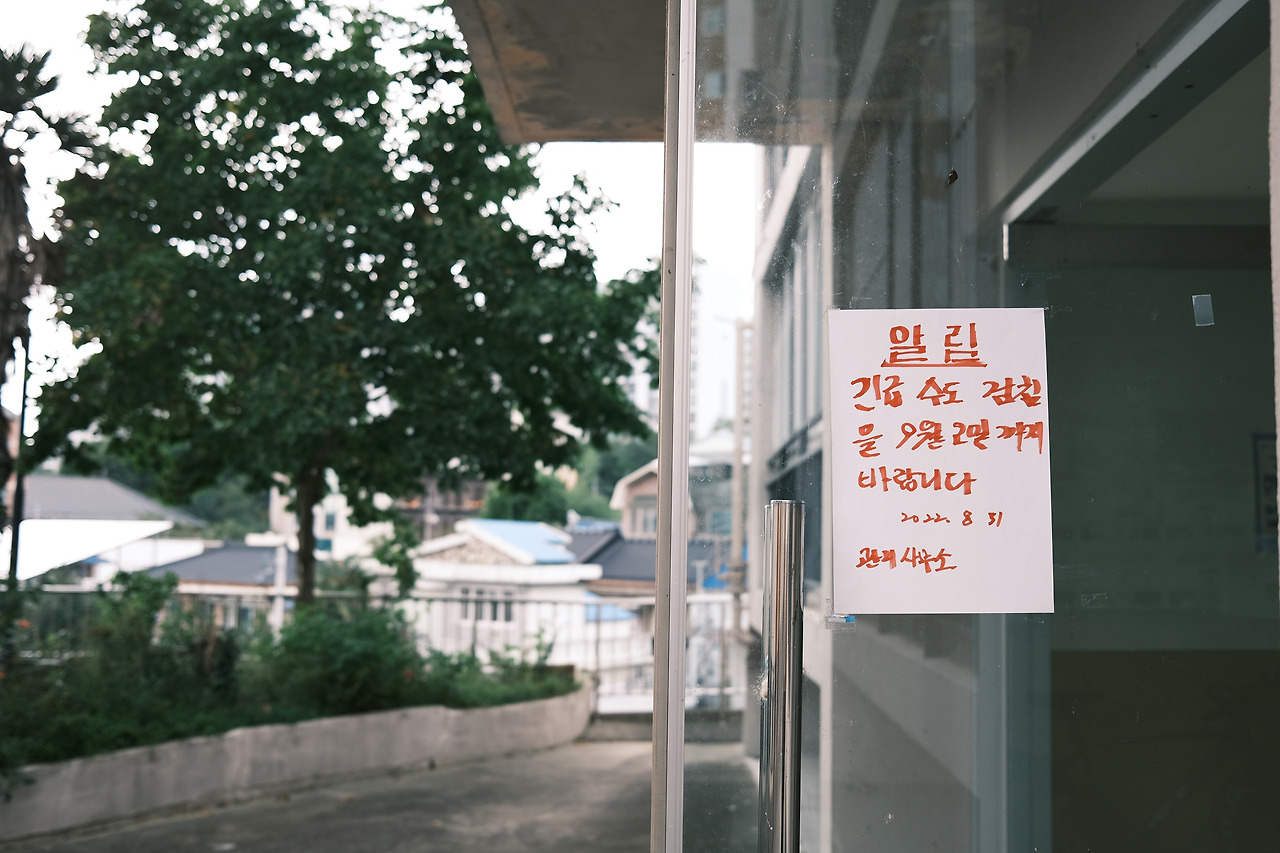 알림
긴급 수도 검침
을 9월 2일 까지
바랍니다
2022. 8 31
관리사무소